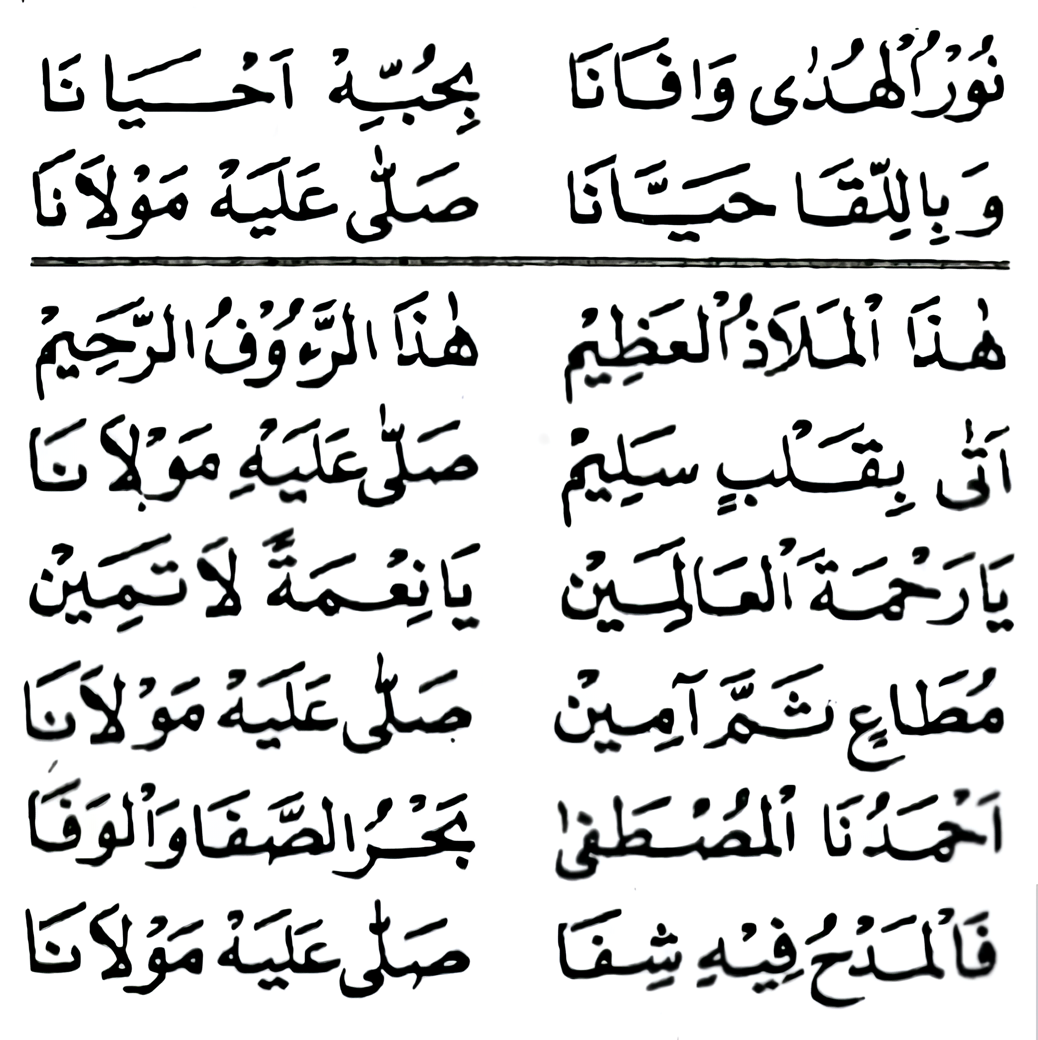 نُوْرُ الْهُدٰى وَافَانَا بِحُبِّهِ اَحْيَانَا
وَبِاللِّقَا حَيَّانَا صَلّٰى عَلَيْهِ مَوْلَانَا
هٰذَا الْمَلَاذُ الْعَظِيْمُ هٰذَا الرَّءُوْفُ الرَّحِيْمُ
اَتٰى بِقَلْبٍ سَلِيْمْ صَلّٰى عَلَيْهِ مَوْلَانَا
يَارَحْمَةَ الْعَالَمِيْنْ يَانِعْمَةً لَا تَمِيْنْ
مُطَاعٍ ثَمَّ آمِيْنْ صَلّٰى عَلَيْهِ مَوْلَانَا
اَحْمَدُنَا الْمُصْطَفٰى بَحْرُ الصَّفَا وَالْوَفَا
فَالْمَدْحُ فِيْهِ شِفَا صَلّٰى عَلَيْهِ مَوْلَانَا